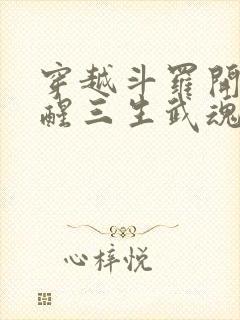 穿越斗罗開
醒三生武魂
心梓悦